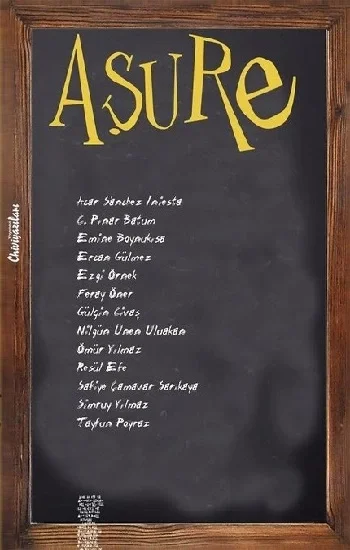 AŞURe
Acar Sanchez Iniesta
G. Pınar Batum
Emine Boynukısa
Ercan Gülmez
Ezgi Örnek
Feray Öner
Gülçin Civaş
Nilgün Unen Uluakan
Ömür Yılmaz
Resül Efe
Safiye Çamavar Sarıkaya
Simruy Yılmaz
Taytun Poyraz
Chiviyazıları